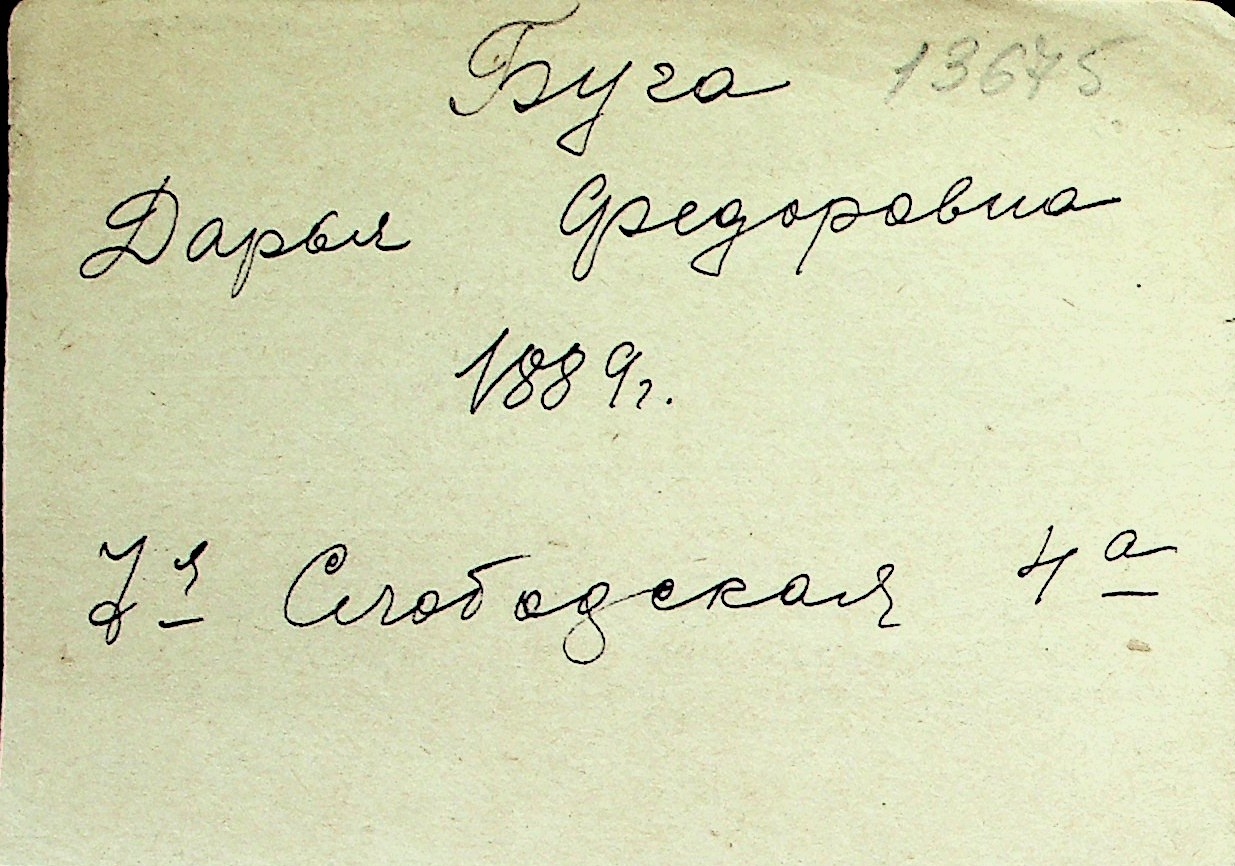 Буга 13675
Дарья Федоровна
1889г.
7я Слободская 4а